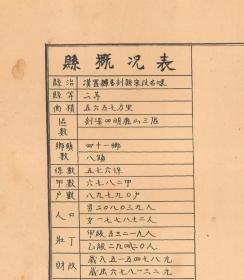 縣概况表
縣治 漢置縣名剡縣宋改名嵊
縣等 二等
面積 五六五七方里
區數 剡溪四明鹿山三區
鄉鎮數 四十一鄉
八鎮
保數 五七六保
甲數 六七八二甲
户數 八九七九〇户
人口 男二〇八〇三九人
女一七七八七二人
壯丁 甲級五三二一九人
乙級二九四三〇人
財政 歲入五一五四七八元
歲出六七八一三二元